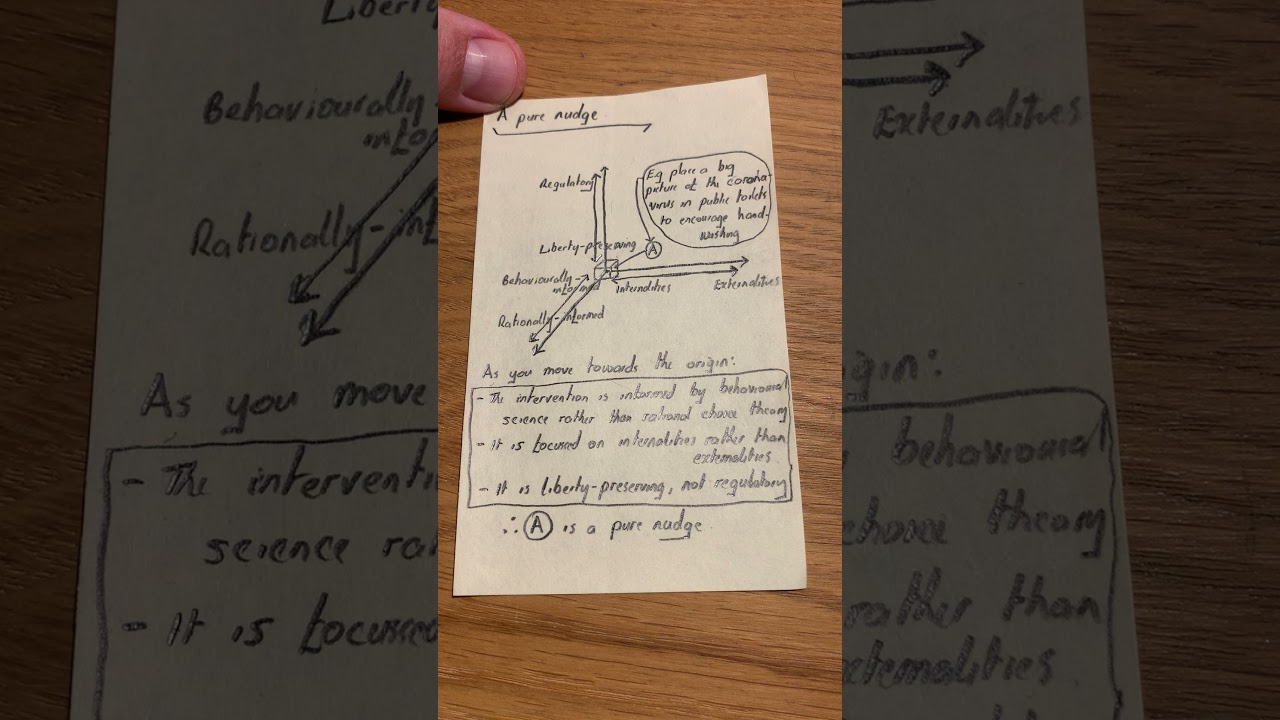 A pure nudge
Regulatory
Eg place a big
picture of the corona-
virus in public toilets
to encourage hand-
washing
Liberty-preserving
A
Behaviourally-
informed
Internalities
Externalities
Rationally-informed
As you move towards the origin:
- The intervention is informed by behavioural
science rather than rational choice theory
- It is focussed on internalities rather than
externalities.
- It is liberty-preserving, not regulatory
∴ A is a pure nudge.